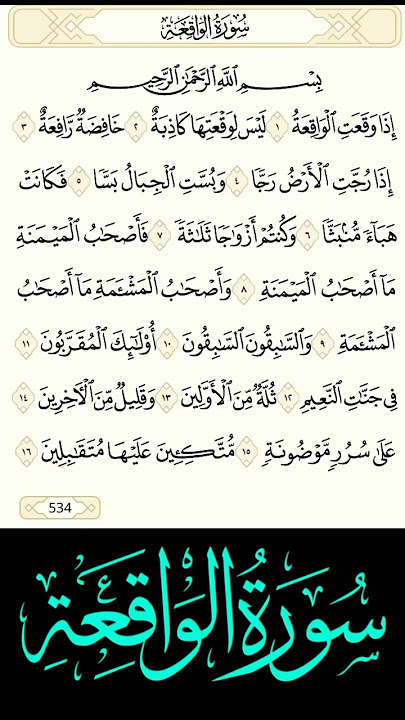 سُورَةُ الْوَاقِعَةِ
بِسْمِ اللَّهِ الرَّحْمَٰنِ الرَّحِيمِ
إِذَا وَقَعَتِ الْوَاقِعَةُ ١ لَيْسَ لِوَقْعَتِهَا كَاذِبَةٌ ٢ خَافِضَةٌ رَّافِعَةٌ ٣
إِذَا رُجَّتِ الْأَرْضُ رَجًّا ٤ وَبُسَّتِ الْجِبَالُ بَسًّا ٥ فَكَانَتْ
هَبَاءً مُّنۢبَثًّا ٦ وَكُنتُمْ أَزْوَاجًا ثَلَاثَةً ٧ فَأَصْحَابُ الْمَيْمَنَةِ
مَا أَصْحَابُ الْمَيْمَنَةِ ٨ وَأَصْحَابُ الْمَشْـَٔمَةِ مَا أَصْحَابُ
الْمَشْـَٔمَةِ ٩ وَالسَّابِقُونَ السَّابِقُونَ ١٠ أُولَـٰئِكَ الْمُقَرَّبُونَ ١١
فِي جَنَّاتِ النَّعِيمِ ١٢ ثُلَّةٌ مِّنَ الْأَوَّلِينَ ١٣ وَقَلِيلٌ مِّنَ الْآخِرِينَ ١٤
عَلَىٰ سُرُرٍ مَّوْضُونَةٍ ١٥ مُّتَّكِـِٔينَ عَلَيْهَا مُتَقَابِلِينَ ١٦
534
سُورَةُ الْوَاقِعَةِ